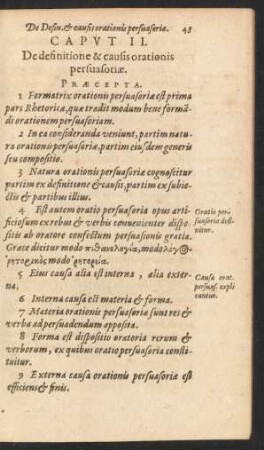 De Defin. & causis orationis persuasoriæ. 45
CAPVT II.
De definitione & causis orationis
persuasoriæ.
PRÆCEPTA.
1 Formatrix orationis persuasoriæ est prima
pars Rhetoricæ, quæ tradit modum bene formã-
di orationem persuasoriam.
2 In ea consideranda veniunt, partim natu
ra orationis persuasoriæ, partim eiusdem generis
seu compositio.
3 Natura orationis persuasoriæ cognoscitur
partim ex definitione & causis, partim ex subie-
ctis & partibus illius.
4 Est autem oratio persuasoria opus arti-
ficiosum ex rebus & verbis convenienter dispo-
sitis ab oratore confectum persuasionis gratia.
Græce dicitur modo πιθανολογία, modo λόγ@
ῥητορικὸς modo ῥητορεία.
Oratio per-
suasoria defi-
nitur.
5 Eius causa alia est interna, alia exter-
na.
Causæ orat.
persuas. expli
cantur.
6 Interna causa est materia & forma.
7 Materia orationis persuasoriæ sunt res &
verba ad persuadendum apposita.
8 Forma est dispositio oratoria rerum &
verborum, ex quibus oratio persuasoria consti-
tuitur.
9 Externa causa orationis persuasoriæ est
efficiens & finis.